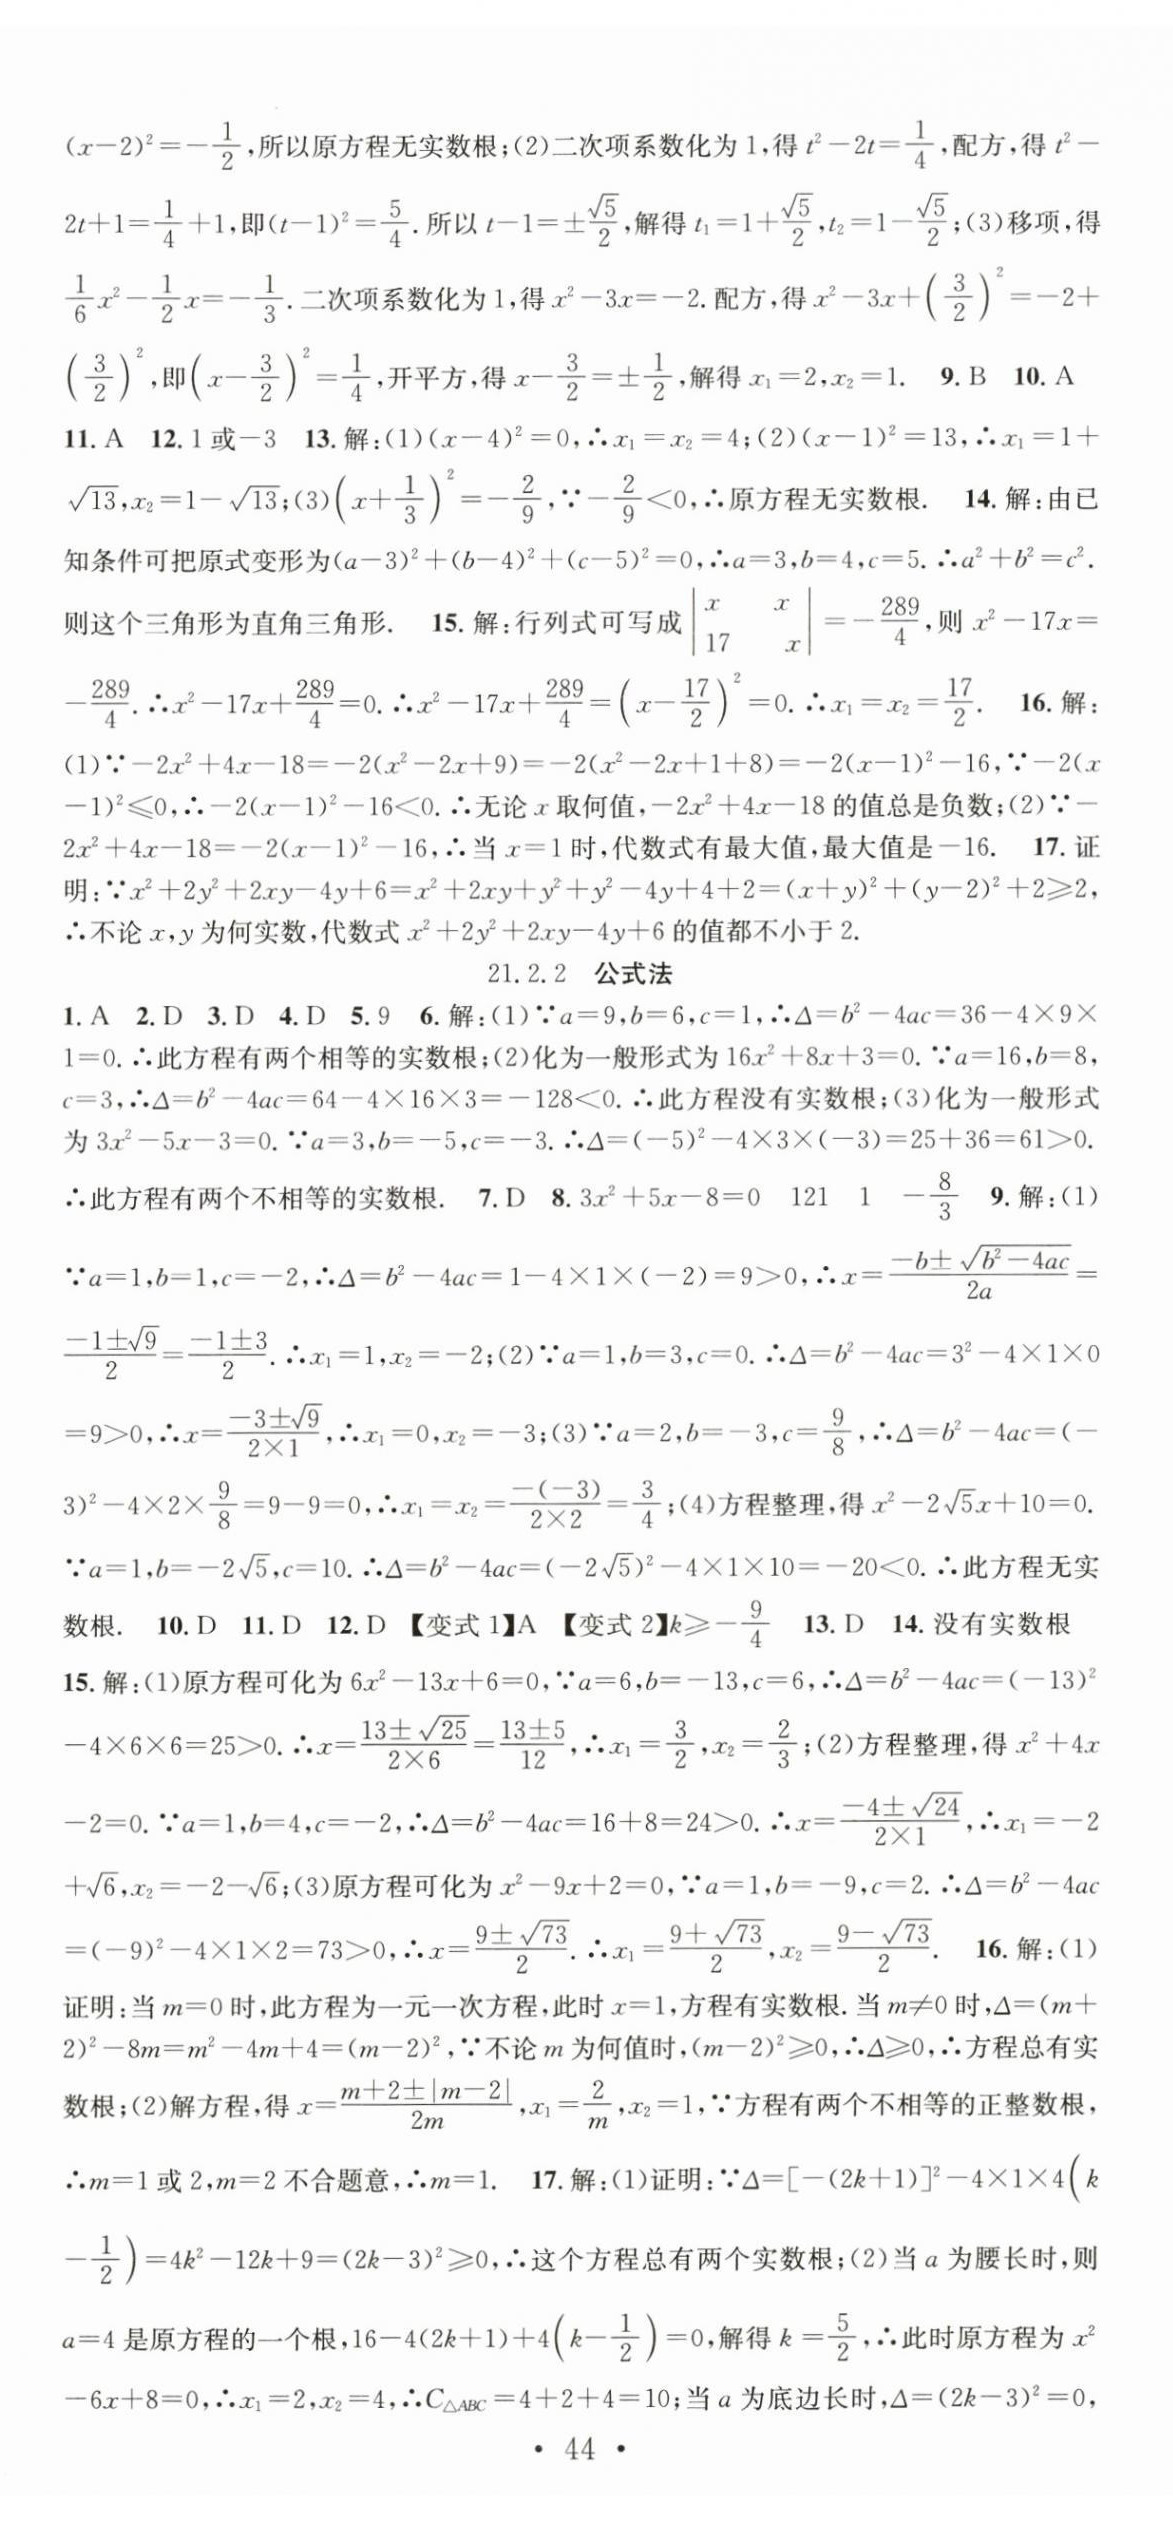 (x-2)²=-1/2,所以原方程无实数根;(2)二次项系数化为1,得 t²-2t=1/4,配方,得 t²-
2t+1=1/4+1,即(t-1)²=5/4.所以 t-1=±√5/2,解得 t₁=1+√5/2,t₂=1-√5/2;(3)移项,得
1/6x²-1/2x=-1/3.二次项系数化为1,得 x²-3x=-2.配方,得 x²-3x+(3/2)²=-2+
(3/2)²,即(x-3/2)²=1/4,开平方,得 x-3/2=±1/2,解得 x₁=2,x₂=1. 9.B 10.A
11.A 12.1或-3 13.解:(1)(x-4)²=0,∴x₁=x₂=4;(2)(x-1)²=13,∴x₁=1+
√13,x₂=1-√13;(3)(x+1/3)²=-2/9,∵-2/9<0,∴原方程无实数根. 14.解:由已
知条件可把原式变形为(a-3)²+(b-4)²+(c-5)²=0,∴a=3,b=4,c=5.∴a²+b²=c².
则这个三角形为直角三角形. 15.解:行列式可写成|x x; 17 x|=-289/4,则 x²-17x=
-289/4.∴x²-17x+289/4=0.∴x²-17x+289/4=(x-17/2)²=0.∴x₁=x₂=17/2. 16.解:
(1)∵-2x²+4x-18=-2(x²-2x+9)=-2(x²-2x+1+8)=-2(x-1)²-16,∵-2(x
-1)²≤0,∴-2(x-1)²-16<0.∴无论 x 取何值,-2x²+4x-18的值总是负数;(2)∵-
2x²+4x-18=-2(x-1)²-16,∴当 x=1时,代数式有最大值,最大值是-16. 17.证
明:∵x²+2y²+2xy-4y+6=x²+2xy+y²+y²-4y+4+2=(x+y)²+(y-2)²+2≥2,
∴不论 x,y 为何实数,代数式 x²+2y²+2xy-4y+6的值都不小于2.
21.2.2 公式法
1.A 2.D 3.D 4.D 5.9 6.解:(1)∵a=9,b=6,c=1,∴Δ=b²-4ac=36-4×9×
1=0.∴此方程有两个相等的实数根;(2)化为一般形式为16x²+8x+3=0.∵a=16,b=8,
c=3,∴Δ=b²-4ac=64-4×16×3=-128<0.∴此方程没有实数根;(3)化为一般形式
为3x²-5x-3=0.∵a=3,b=-5,c=-3.∴Δ=(-5)²-4×3×(-3)=25+36=61>0.
∴此方程有两个不相等的实数根. 7.D 8.3x²+5x-8=0 121 1 -8/3 9.解:(1)
∵a=1,b=1,c=-2,∴Δ=b²-4ac=1-4×1×(-2)=9>0,∴x=(-b±√(b²-4ac))/2a=
(-1±√9)/2=(-1±3)/2.∴x₁=1,x₂=-2;(2)∵a=1,b=3,c=0.∴Δ=b²-4ac=3²-4×1×0
=9>0,∴x=(-3±√9)/(2×1),∴x₁=0,x₂=-3;(3)∵a=2,b=-3,c=9/8,∴Δ=b²-4ac=(-
3)²-4×2×9/8=9-9=0,∴x₁=x₂=-(-3)/(2×2)=3/4;(4)方程整理,得 x²-2√5x+10=0.
∵a=1,b=-2√5,c=10.∴Δ=b²-4ac=(-2√5)²-4×1×10=-20<0.∴此方程无实
数根. 10.D 11.D 12.D 【变式1】A 【变式2】k≥-9/4 13.D 14.没有实数根
15.解:(1)原方程可化为6x²-13x+6=0,∵a=6,b=-13,c=6,∴Δ=b²-4ac=(-13)²
-4×6×6=25>0.∴x=(13±√25)/(2×6)=(13±5)/12,∴x₁=3/2,x₂=2/3;(2)方程整理,得 x²+4x
-2=0.∵a=1,b=4,c=-2,∴Δ=b²-4ac=16+8=24>0.∴x=(-4±√24)/(2×1),∴x₁=-2
+√6,x₂=-2-√6;(3)原方程可化为 x²-9x+2=0,∵a=1,b=-9,c=2.∴Δ=b²-4ac
=(-9)²-4×1×2=73>0,∴x=(9±√73)/2.∴x₁=(9+√73)/2,x₂=(9-√73)/2. 16.解:(1)
证明:当 m=0时,此方程为一元一次方程,此时 x=1,方程有实数根.当 m≠0时,Δ=(m+
2)²-8m=m²-4m+4=(m-2)²,∵不论 m 为何值时,(m-2)²≥0,∴Δ≥0,∴方程总有实
数根;(2)解方程,得 x=(m+2±|m-2|)/2m,x₁=2/m,x₂=1,∵方程有两个不相等的正整数根,
∴m=1或2,m=2不合题意,∴m=1. 17.解:(1)证明:∵Δ=[-(2k+1)]²-4×1×4(k
-1/2)=4k²-12k+9=(2k-3)²≥0,∴这个方程总有两个实数根;(2)当 a 为腰长时,则
a=4是原方程的一个根,16-4(2k+1)+4(k-1/2)=0,解得 k=5/2,∴此时原方程为 x²
-6x+8=0,∴x₁=2,x₂=4,∴C△ABC=4+2+4=10;当 a 为底边长时,Δ=(2k-3)²=0,
· 44 ·